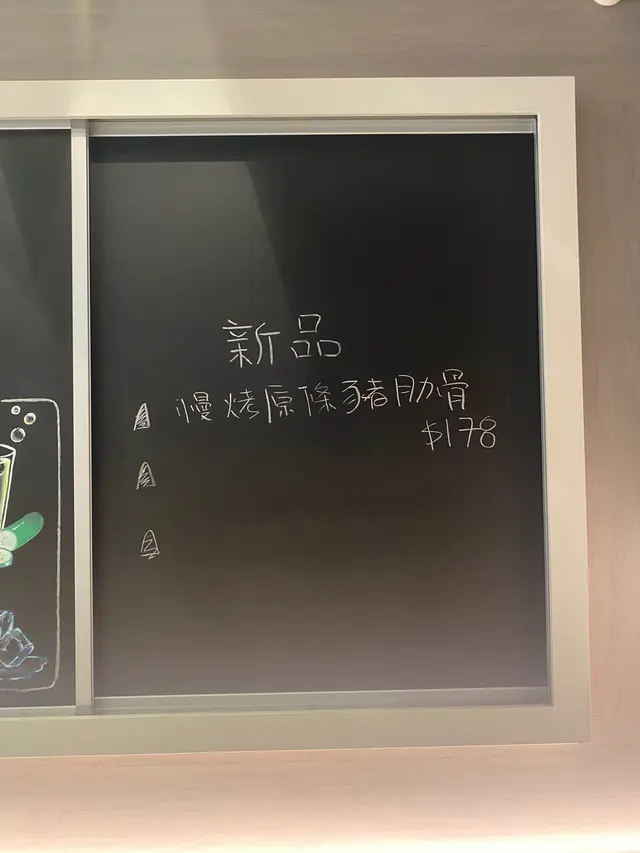 新品
慢烤原條豬肋骨
$178